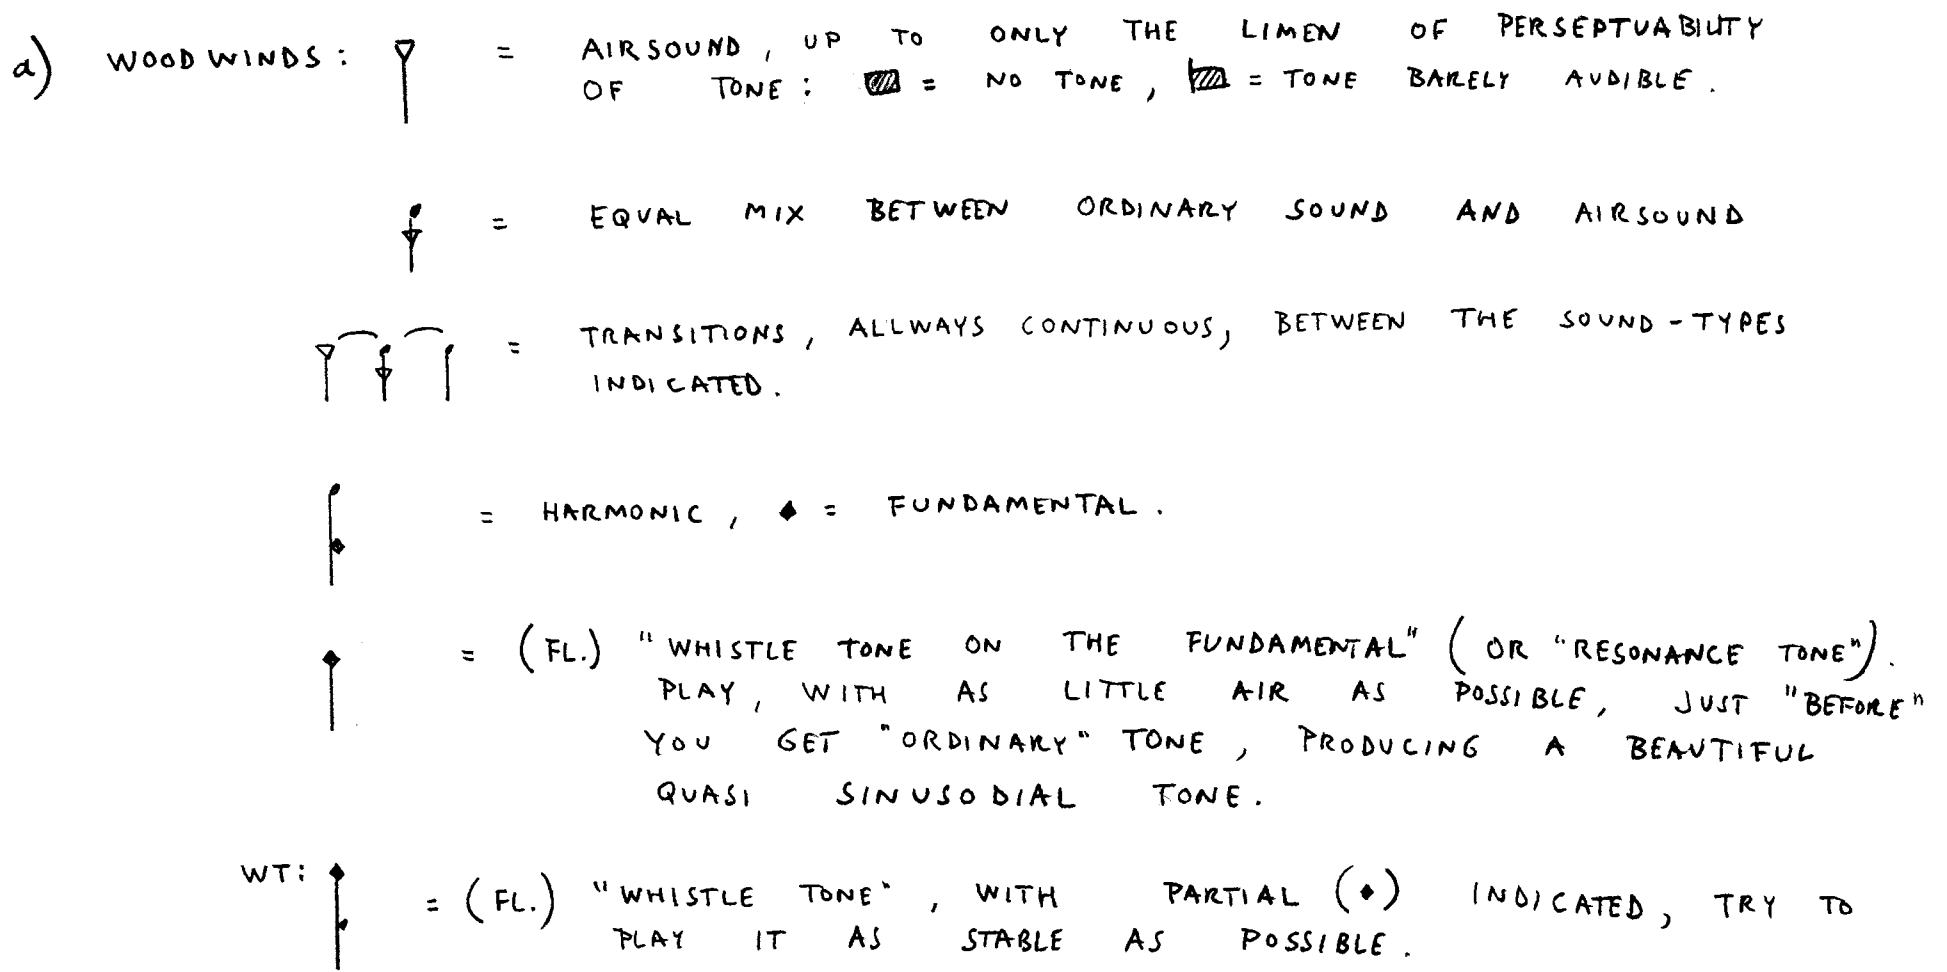 a) WOODWINDS: = AIRSOUND, UP TO ONLY THE LIMEN OF PERSEPTUABILITY
OF TONE: = NO TONE, = TONE BARELY AUDIBLE.
= EQUAL MIX BETWEEN ORDINARY SOUND AND AIRSOUND
= TRANSITIONS, ALLWAYS CONTINUOUS, BETWEEN THE SOUND-TYPES
INDICATED.
= HARMONIC, ◆ = FUNDAMENTAL.
= (FL.) "WHISTLE TONE ON THE FUNDAMENTAL" (OR "RESONANCE TONE").
PLAY, WITH AS LITTLE AIR AS POSSIBLE, JUST "BEFORE"
YOU GET "ORDINARY" TONE, PRODUCING A BEAUTIFUL
QUASI SINUSODIAL TONE.
WT: = (FL.) "WHISTLE TONE", WITH PARTIAL (◆) INDICATED, TRY TO
PLAY IT AS STABLE AS POSSIBLE.